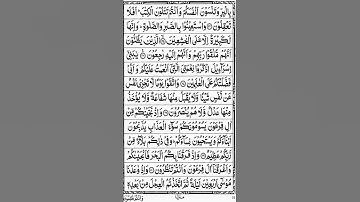 بِالْبِرِّ وَتَنْسَوْنَ اَنْفُسَكُمْ وَاَنْتُمْ تَتْلُوْنَ الْكِتٰبَ اَفَلَا
تَعْقِلُوْنَ وَاسْتَعِيْنُوْا بِالصَّبْرِ وَالصَّلٰوةِ وَاِنَّهَا
لَكَبِيْرَةٌ اِلَّا عَلَى الْخٰشِعِيْنَ الَّذِيْنَ يَظُنُّوْنَ
اَنَّهُمْ مُّلٰقُوْا رَبِّهِمْ وَاَنَّهُمْ اِلَيْهِ رٰجِعُوْنَ يٰبَنِيْٓ
اِسْرَآءِيْلَ اذْكُرُوْا نِعْمَتِيَ الَّتِيْٓ اَنْعَمْتُ عَلَيْكُمْ وَاَنِّيْ
فَضَّلْتُكُمْ عَلَى الْعٰلَمِيْنَ وَاتَّقُوْا يَوْمًا لَّا تَجْزِيْ نَفْسٌ
عَنْ نَّفْسٍ شَيْئًا وَّلَا يُقْبَلُ مِنْهَا شَفَاعَةٌ وَّلَا يُؤْخَذُ
مِنْهَا عَدْلٌ وَّلَا هُمْ يُنْصَرُوْنَ وَاِذْ نَجَّيْنٰكُمْ مِّنْ
اٰلِ فِرْعَوْنَ يَسُوْمُوْنَكُمْ سُوْٓءَ الْعَذَابِ يُذَبِّحُوْنَ
اَبْنَآءَكُمْ وَيَسْتَحْيُوْنَ نِسَآءَكُمْ وَفِيْ ذٰلِكُمْ بَلَآءٌ مِّنْ
رَّبِّكُمْ عَظِيْمٌ وَاِذْ فَرَقْنَا بِكُمُ الْبَحْرَ فَاَنْجَيْنٰكُمْ
وَاَغْرَقْنَآ اٰلَ فِرْعَوْنَ وَاَنْتُمْ تَنْظُرُوْنَ وَاِذْ وٰعَدْنَا
مُوْسٰٓى اَرْبَعِيْنَ لَيْلَةً ثُمَّ اتَّخَذْتُمُ الْعِجْلَ مِنْ بَعْدِهٖ
منزل ١